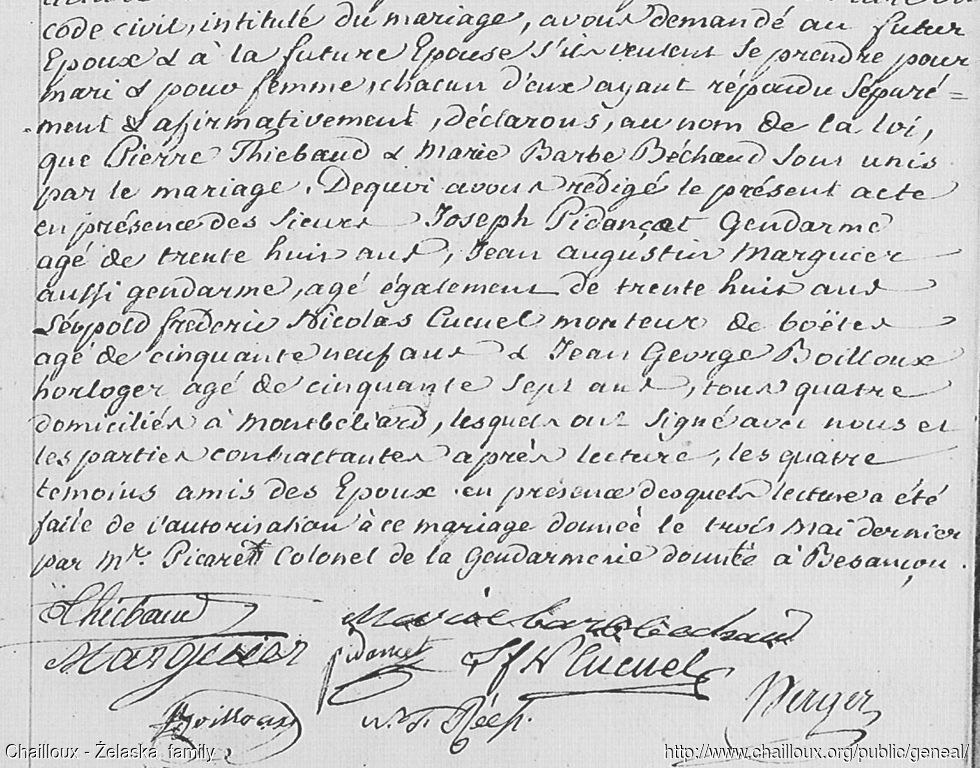 code civil, intitulé du mariage, avons demandé au futur
Epoux & à la future Epouse s'ils veulent se prendre pour
mari & pour femme, chacun d'eux ayant répondu séparé=
ment & afirmativement, Déclarons, au nom de la loi,
que Pierre Thiébaud & Marie Barbe Béchaud sont unis
par le mariage. Dequoi avons rédigé le présent acte
en présence des sieurs Joseph Pidançet Gendarme
agé de trente huit ans, Jean augustin Marguier
aussi gendarme, agé également de trente huit ans
Léopold frederic Nicolas Cucuel monteur de boëtes
agé de cinquante neuf ans & Jean George Boilloux
horloger agé de cinquante sept ans, tous quatre
domiciliés à Montbéliard, lesquels ont signé avec nous et
les parties contractantes après lecture, les quatre
temoins amis des Epoux. en présence desquels lecture a été
faite de l'autorisation à ce mariage donnée le trois Mai dernier
par Mr. Picaret Colonel de la Gendarmerie à Besançon.
Thiebaud Marie barbe bechaud
Marguier pidancet L f N Cucuel
Boilloux Berger
Chailloux - Želaska family http://www.chailloux.org/public/geneal/